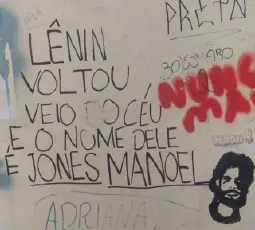 PRETA
LÊNIN
VOLTOU
VEIO DO CÉU
E O NOME DELE
É JONES MANOEL
BOLSONARO
NUNCA
MAIS
ADRIANA